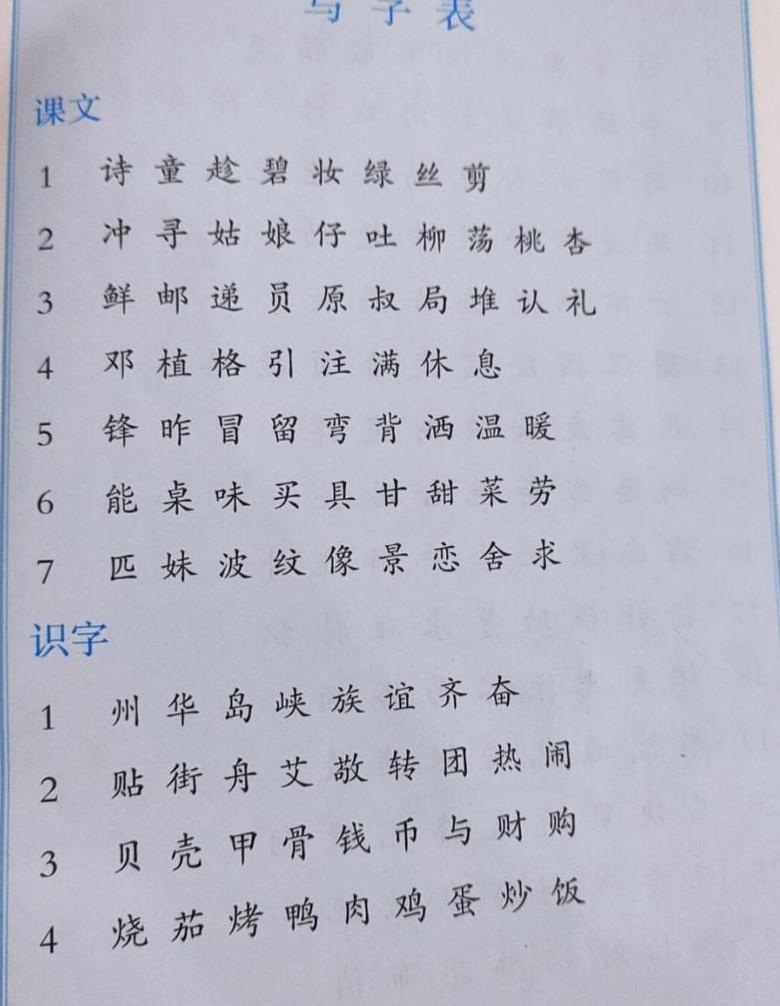 写字表
课文
1 诗 童 趁 碧 妆 绿 丝 剪
2 冲 寻 姑 娘 仔 吐 柳 荡 桃 杏
3 鲜 邮 递 员 原 叔 局 堆 认 礼
4 邓 植 格 引 注 满 休 息
5 锋 昨 冒 留 弯 背 洒 温 暖
6 能 桌 味 买 具 甘 甜 菜 劳
7 匹 妹 波 纹 像 景 恋 舍 求
识字
1 州 华 岛 峡 族 谊 齐 奋
2 贴 街 舟 艾 敬 转 团 热 闹
3 贝 壳 甲 骨 钱 币 与 财 购
4 烧 茄 烤 鸭 肉 鸡 蛋 炒 饭